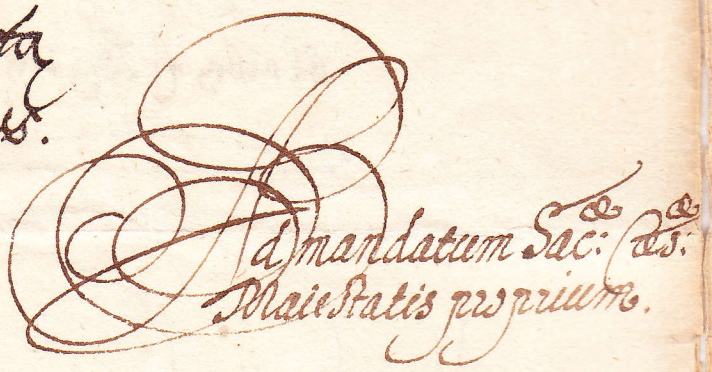 Ad mandatum Sac:æ Cæs:æ
Maiestatis proprium.